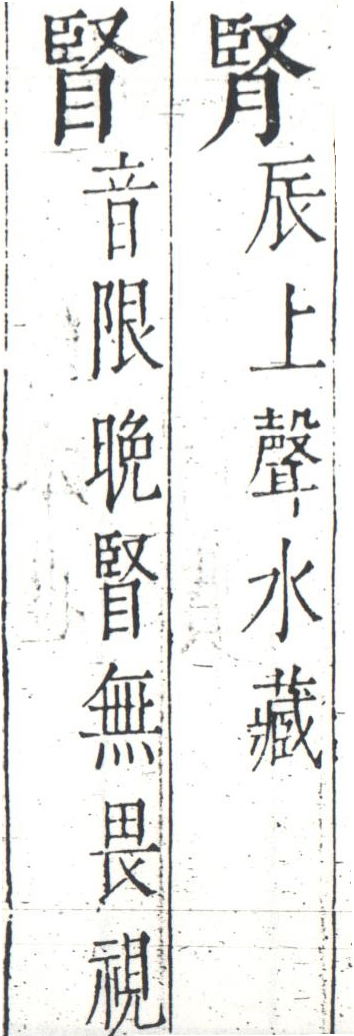 腎辰上聲水藏
䀼音限晩䀼無畏視